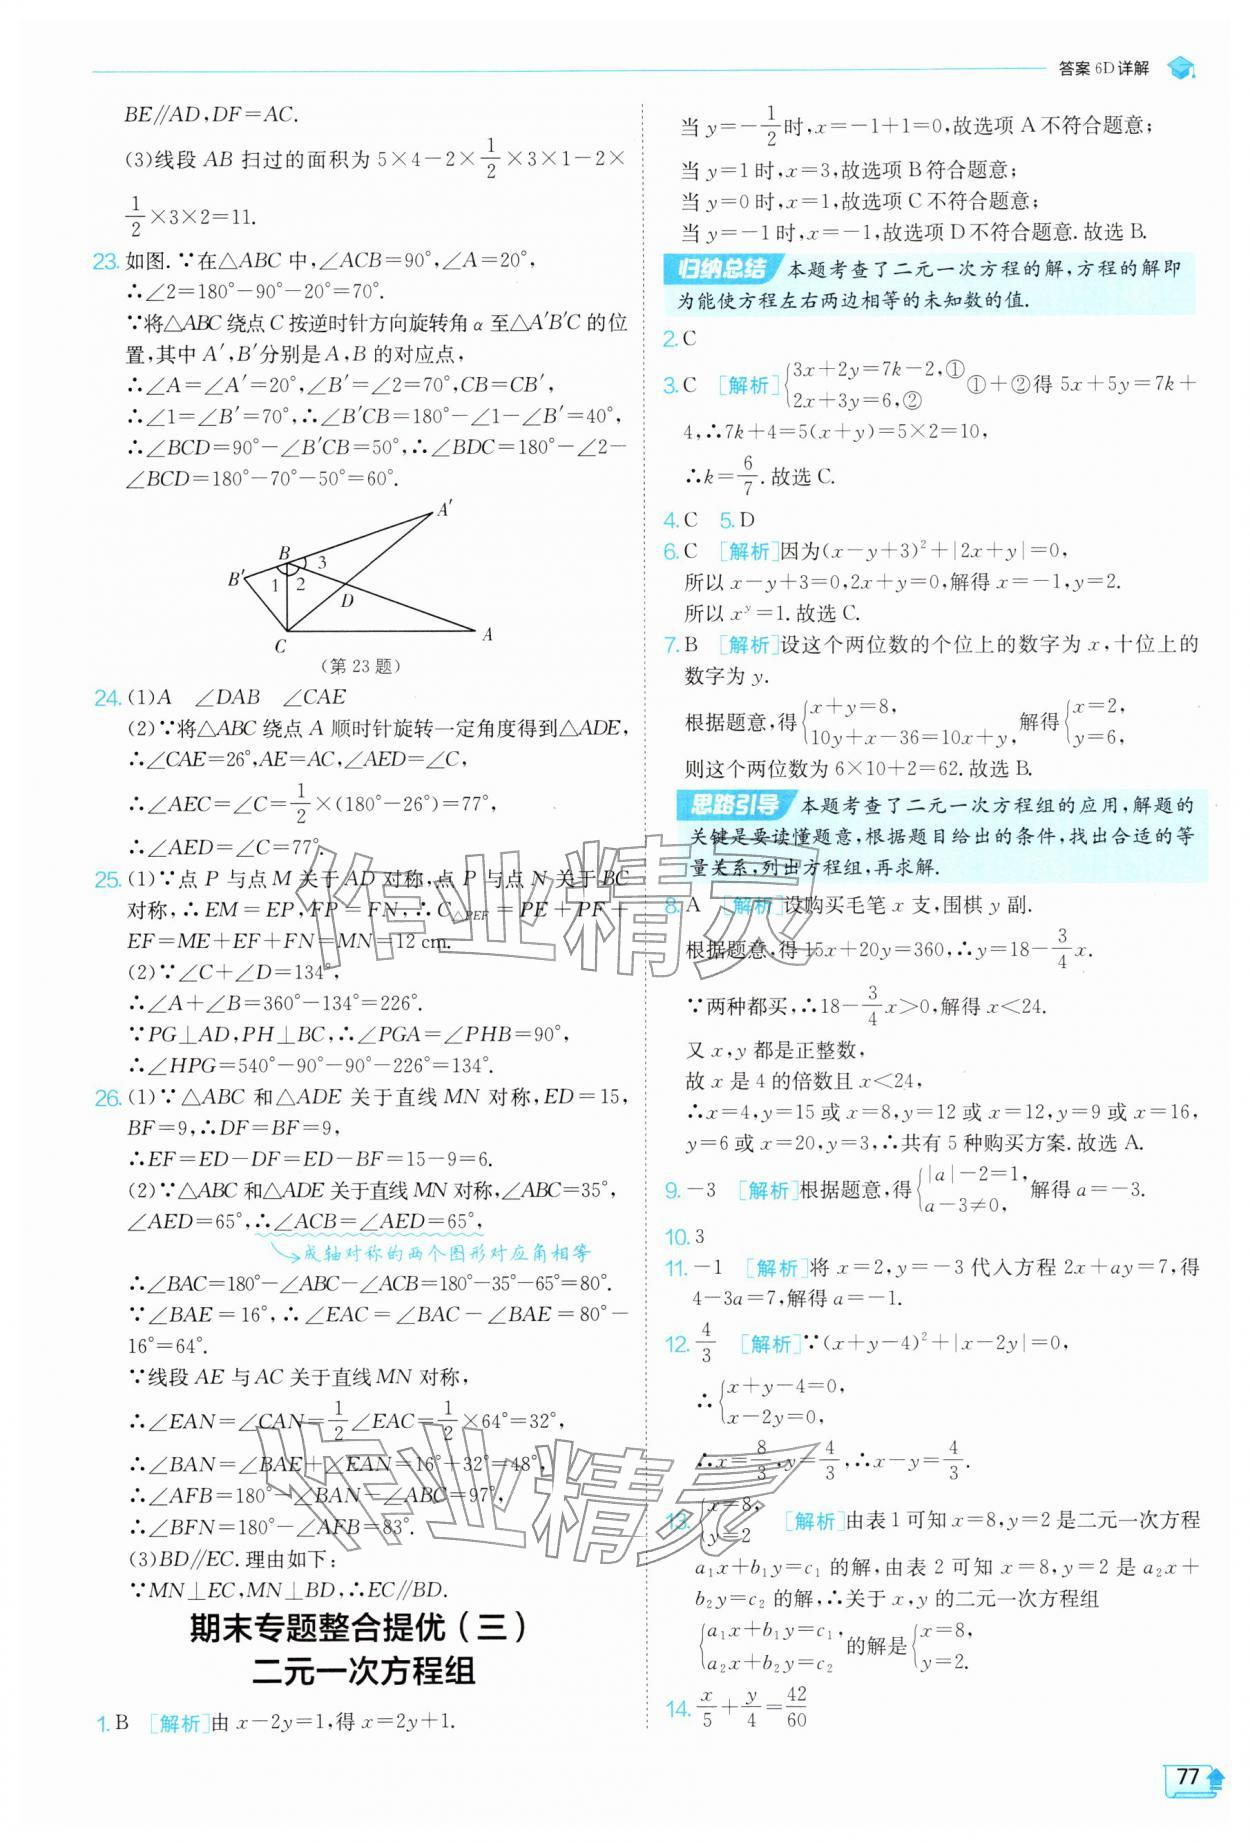 答案 6D详解
BE∥AD,DF=AC.
(3)线段 AB 扫过的面积为 5×4-2×1/2×3×1-2×
1/2×3×2=11.
23. 如图.∵在△ABC 中,∠ACB=90°,∠A=20°,
∴∠2=180°-90°-20°=70°.
∵将△ABC 绕点 C 按逆时针方向旋转角 α 至△A′B′C 的位
置,其中 A′,B′分别是 A,B 的对应点,
∴∠A=∠A′=20°,∠B′=∠2=70°,CB=CB′,
∴∠1=∠B′=70°,∴∠B′CB=180°-∠1-∠B′=40°,
∴∠BCD=90°-∠B′CB=50°,∴∠BDC=180°-∠2-
∠BCD=180°-70°-50°=60°.
A′
B
3
B′
1
2
D
C
A
(第 23 题)
24. (1)A ∠DAB ∠CAE
(2)∵将△ABC 绕点 A 顺时针旋转一定角度得到△ADE,
∴∠CAE=26°,AE=AC,∠AED=∠C,
∴∠AEC=∠C=1/2×(180°-26°)=77°,
∴∠AED=∠C=77°.
25. (1)∵点 P 与点 M 关于 AD 对称,点 P 与点 N 关于 BC
对称,∴EM=EP,FP=FN,∴C△PEF=PE+PF+
EF=ME+EF+FN=MN=12 cm.
(2)∵∠C+∠D=134°,
∴∠A+∠B=360°-134°=226°.
∵PG⊥AD,PH⊥BC,∴∠PGA=∠PHB=90°,
∴∠HPG=540°-90°-90°-226°=134°.
26. (1)∵△ABC 和△ADE 关于直线 MN 对称,ED=15,
BF=9,∴DF=BF=9,
∴EF=ED-DF=ED-BF=15-9=6.
(2)∵△ABC 和△ADE 关于直线 MN 对称,∠ABC=35°,
∠AED=65°,∴∠ACB=∠AED=65°,
成轴对称的两个图形对应角相等
∴∠BAC=180°-∠ABC-∠ACB=180°-35°-65°=80°.
∵∠BAE=16°,∴∠EAC=∠BAC-∠BAE=80°-
16°=64°.
∵线段 AE 与 AC 关于直线 MN 对称,
∴∠EAN=∠CAN=1/2∠EAC=1/2×64°=32°,
∴∠BAN=∠BAE+∠EAN=16°+32°=48°,
∴∠AFB=180°-∠BAN-∠ABC=97°,
∴∠BFN=180°-∠AFB=83°.
(3)BD∥EC.理由如下:
∵MN⊥EC,MN⊥BD,∴EC∥BD.
期末专题整合提优(三)
二元一次方程组
1. B [解析]由 x-2y=1,得 x=2y+1.
当 y=-1/2时,x=-1+1=0,故选项 A 不符合题意;
当 y=1 时,x=3,故选项 B 符合题意;
当 y=0 时,x=1,故选项 C 不符合题意;
当 y=-1 时,x=-1,故选项 D 不符合题意.故选 B.
归纳总结 本题考查了二元一次方程的解,方程的解即
为能使方程左右两边相等的未知数的值.
2. C
3. C [解析]{3x+2y=7k-2,① 2x+3y=6,② ①+②得 5x+5y=7k+
4,∴7k+4=5(x+y)=5×2=10,
∴k=6/7.故选 C.
4. C 5. D
6. C [解析]因为(x-y+3)²+|2x+y|=0,
所以 x-y+3=0,2x+y=0,解得 x=-1,y=2.
所以 x^y=1.故选 C.
7. B [解析]设这个两位数的个位上的数字为 x,十位上的
数字为 y.
根据题意,得{x+y=8, 10y+x-36=10x+y, 解得{x=2, y=6,
则这个两位数为 6×10+2=62.故选 B.
思路引导 本题考查了二元一次方程组的应用,解题的
关键是要读懂题意,根据题目给出的条件,找出合适的等
量关系,列出方程组,再求解.
8. A [解析]设购买毛笔 x 支,围棋 y 副.
根据题意,得 15x+20y=360,∴y=18-3/4x.
∵两种都买,∴18-3/4x>0,解得 x<24.
又 x,y 都是正整数,
故 x 是 4 的倍数且 x<24,
∴x=4,y=15 或 x=8,y=12 或 x=12,y=9 或 x=16,
y=6 或 x=20,y=3,∴共有 5 种购买方案.故选 A.
9. -3 [解析]根据题意,得{|a|-2=1, a-3≠0, 解得 a=-3.
10. 3
11. -1 [解析]将 x=2,y=-3 代入方程 2x+ay=7,得
4-3a=7,解得 a=-1.
12. 4/3 [解析]∵(x+y-4)²+|x-2y|=0,
∴{x+y-4=0, x-2y=0,
∴x=8/3,y=4/3,∴x-y=4/3.
13. {x=8, y=2 [解析]由表 1 可知 x=8,y=2 是二元一次方程
a₁x+b₁y=c₁ 的解,由表 2 可知 x=8,y=2 是 a₂x+
b₂y=c₂ 的解,∴关于 x,y 的二元一次方程组
{a₁x+b₁y=c₁, a₂x+b₂y=c₂ 的解是{x=8, y=2.
14. x/5+y/4=42/60
作业精灵
作业精灵
77